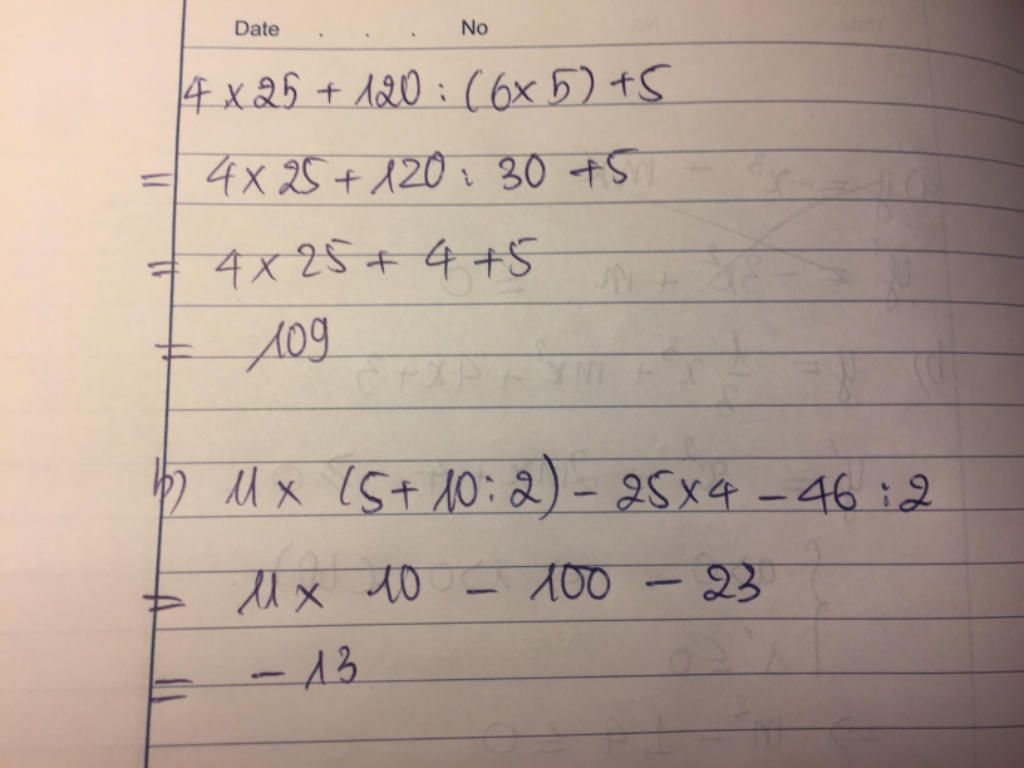 Date . . . No
4 x 25 + 120 : (6 x 5) + 5
= 4 x 25 + 120 : 30 + 5
= 4 x 25 + 4 + 5
= 109
b) 11 x (5 + 10 : 2) - 25 x 4 - 46 : 2
= 11 x 10 - 100 - 23
= - 13